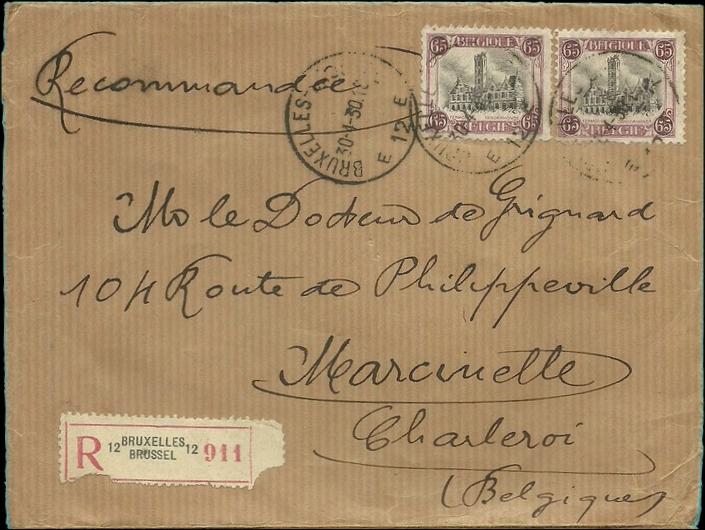 Recommandée
65 BELGIQUE 65
65 BELGIE 65
65 BELGIQUE 65
65 BELGIE 65
BRUXELLES
30-4-30
E 12 E
Mr le Docteur de Grignard
104 Route de Philippeville
Marcinelle
Charleroi
(Belgique)
R 12 BRUXELLES 12 911
BRUSSEL